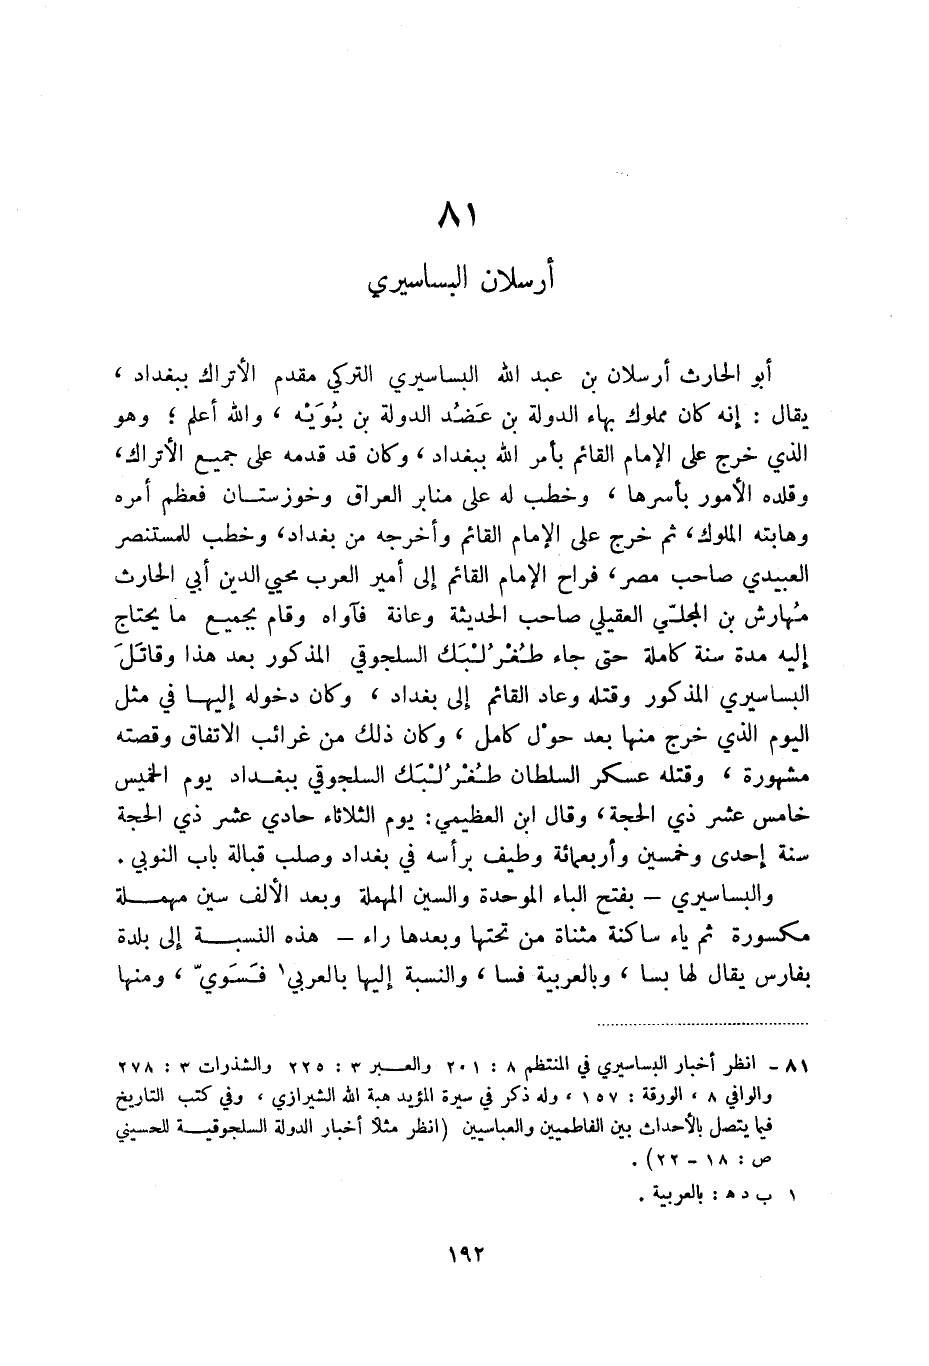 ٨١
أرسلان البساسيري
أبو الحارث أرسلان بن عبد الله البساسيري التركي مقدم الأتراك ببغداد ،
يقال : إنه كان مملوك بهاء الدولة بن عَضُد الدولة بن بُوَيْه ، والله أعلم ؛ وهو
الذي خرج على الإمام القائم بأمر الله ببغداد ، وكان قد قدمه على جميع الأتراك،
وقلده الأمور بأسرها ، وخطب له على منابر العراق وخوزستان فعظم أمره
وهابته الملوك، ثم خرج على الإمام القائم وأخرجه من بغداد، وخطب للمستنصر
العبيدي صاحب مصر، فراح الإمام القائم إلى أمير العرب محيي الدين أبي الحارث
مُهارش بن المجلّي العقيلي صاحب الحديثة وعانة فآواه وقام بجميع ما يحتاج
إليه مدة سنة كاملة حتى جاء طُغْرُلْبَك السلجوقي المذكور بعد هذا وقاتَلَ
البساسيري المذكور وقتله وعاد القائم إلى بغداد ، وكان دخوله إليها في مثل
اليوم الذي خرج منها بعد حوْل كامل ، وكان ذلك من غرائب الاتفاق وقصته
مشهورة ، وقتله عسكر السلطان طُغْرُلْبَك السلجوقي ببغداد يوم الخميس
خامس عشر ذي الحجة، وقال ابن العظيمي: يوم الثلاثاء حادي عشر ذي الحجة
سنة إحدى وخمسين وأربعمائة وطيف برأسه في بغداد وصلب قبالة باب النوبي .
والبساسيري – بفتح الباء الموحدة والسين المهملة وبعد الألف سين مهملة
مكسورة ثم ياء ساكنة مثناة من تحتها وبعدها راء – هذه النسبة إلى بلدة
بفارس يقال لها بسا ، وبالعربية فسا ، والنسبة إليها بالعربي١ فَسَوِيّ ، ومنها
٨١ - انظر أخبار البساسيري في المنتظم ٨ : ٢٠١ والعبر ٣ : ٢٢٥ والشذرات ٣ : ٢٧٨
والوافي ٨ ، الورقة : ١٥٧ ، وله ذكر في سيرة المؤيد هبة الله الشيرازي ، وفي كتب التاريخ
فيما يتصل بالأحداث بين الفاطميين والعباسيين (انظر مثلاً أخبار الدولة السلجوقية للحسيني
ص : ١٨ - ٢٢) .
١ ب د ه : بالعربية .
١٩٢